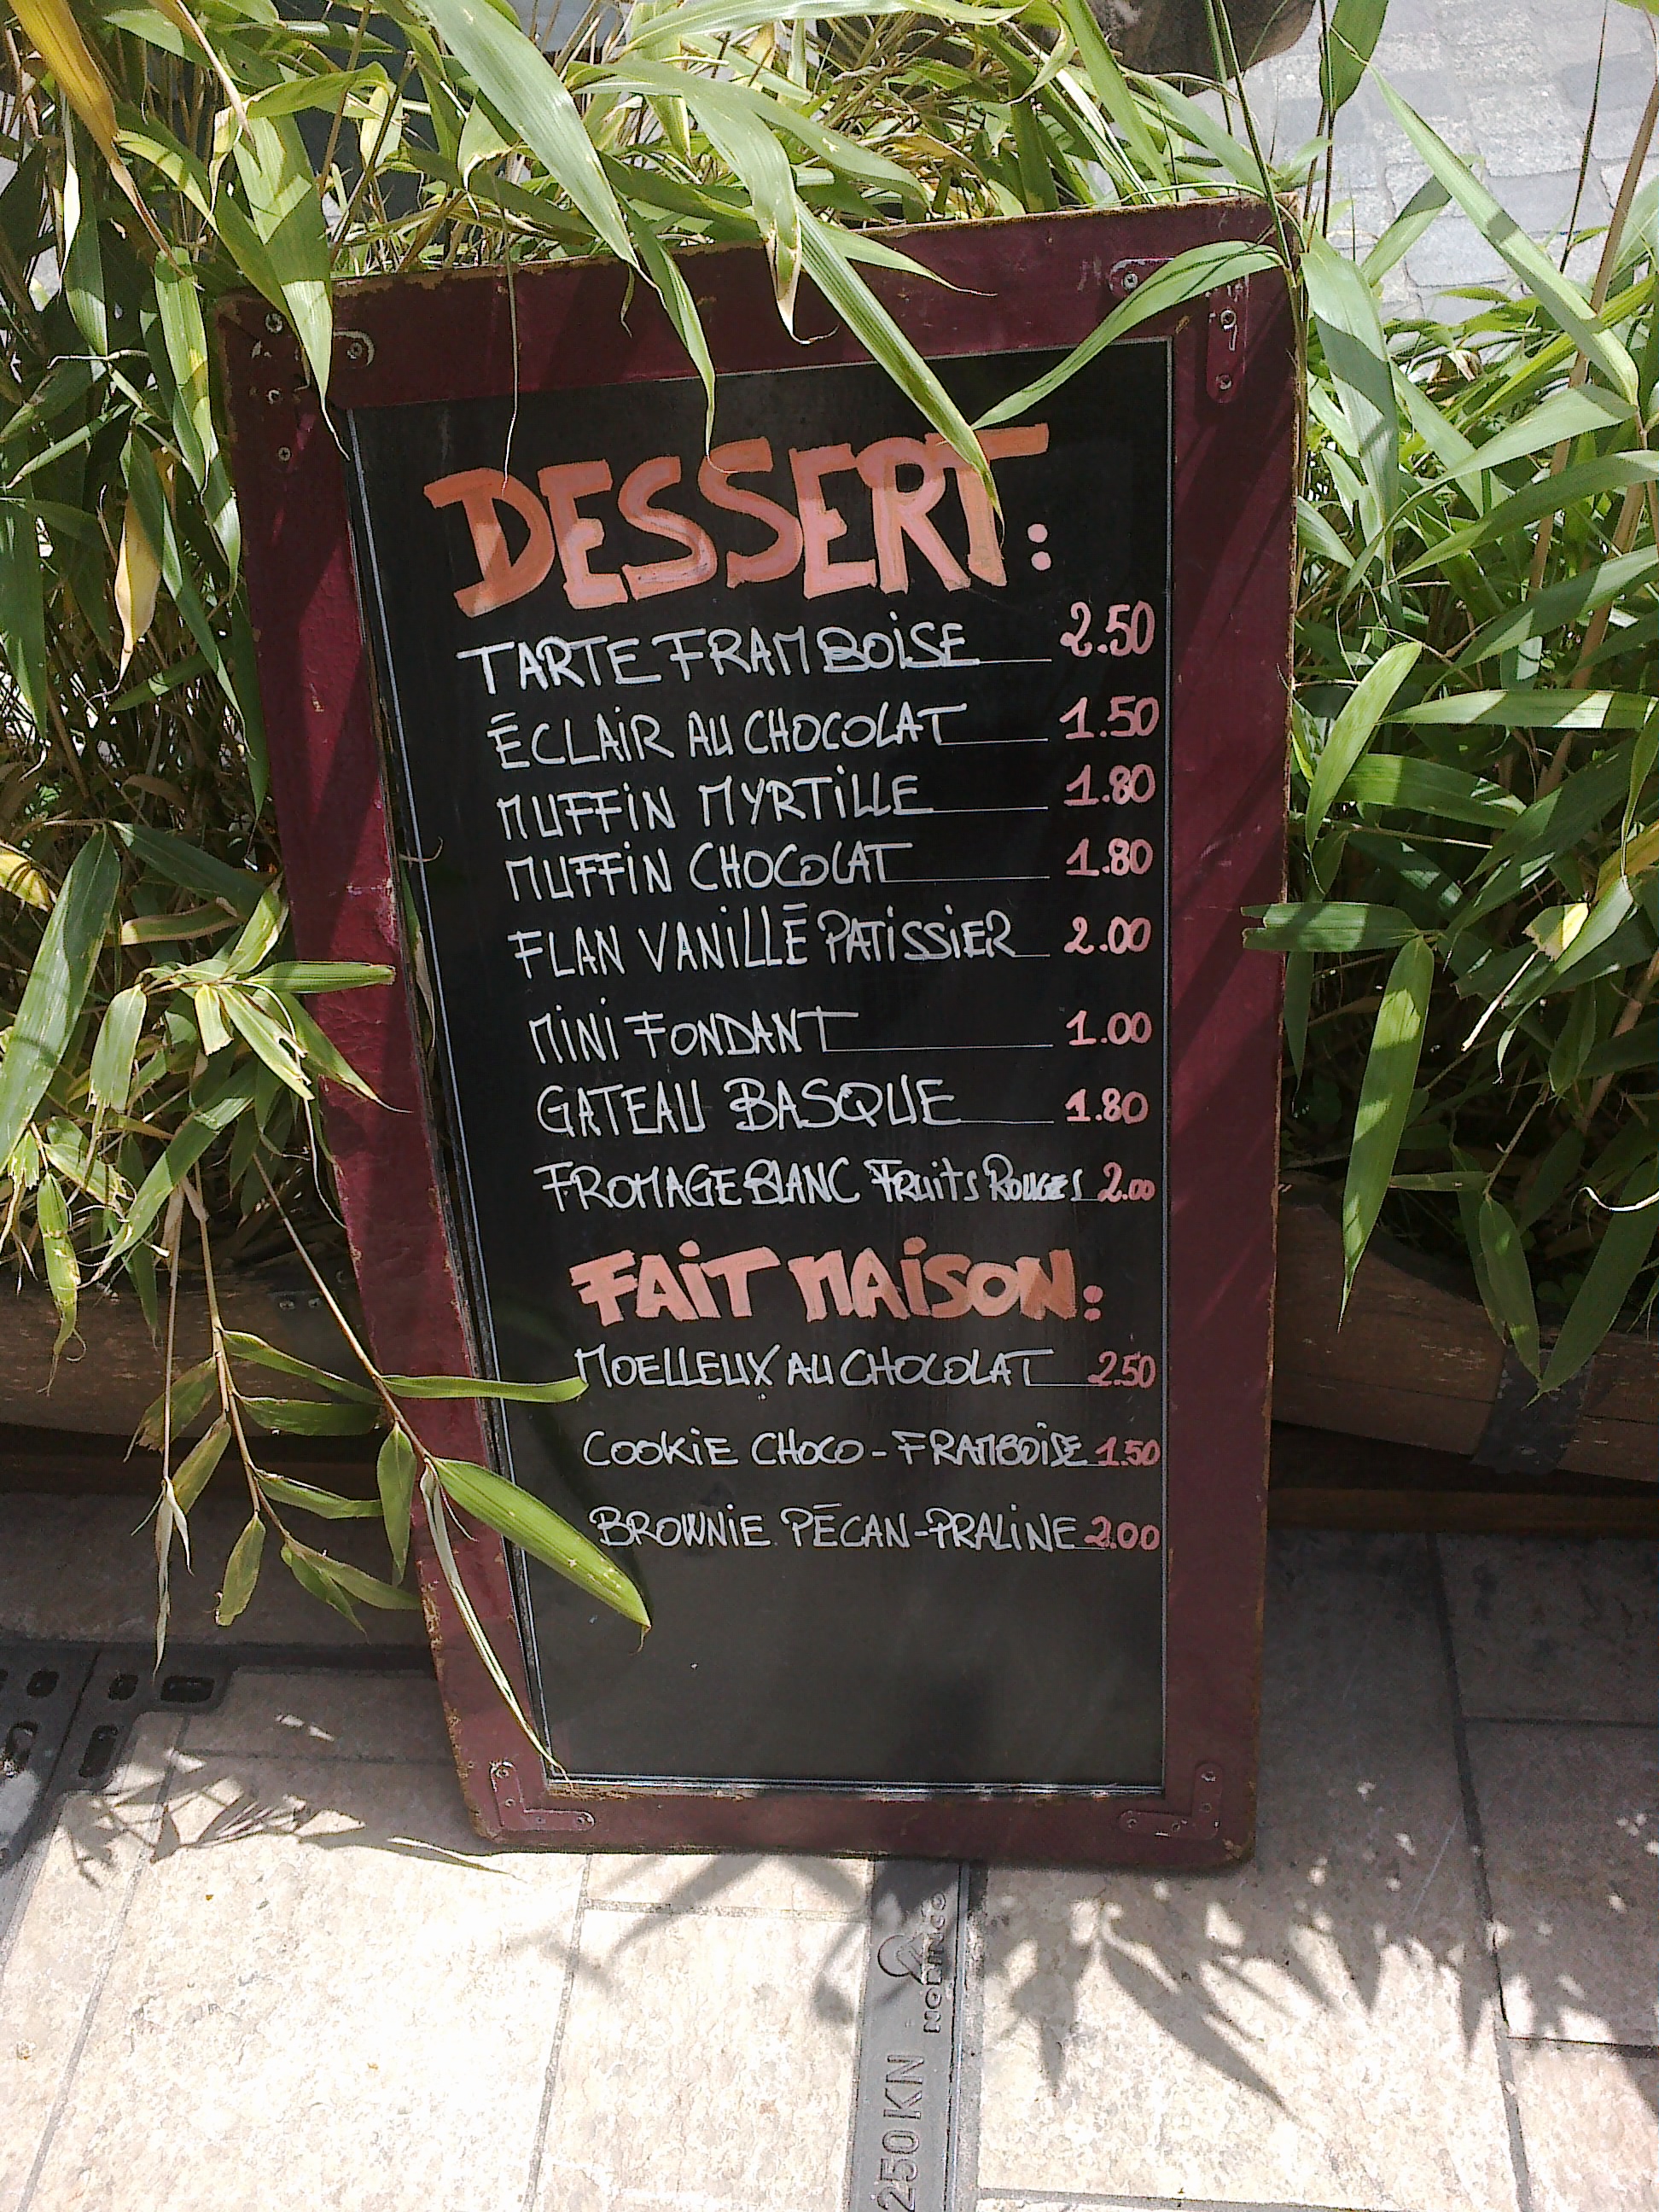 DESSERT:
TARTE FRAMBOISE 2.50
ÉCLAIR AU CHOCOLAT 1.50
MUFFIN MYRTILLE 1.80
MUFFIN CHOCOLAT 1.80
FLAN VANILLÉ PATISSIER 2.00
MINI FONDANT 1.00
GATEAU BASQUE 1.80
FROMAGE BLANC FRUITS ROUGES 2.00
FAIT MAISON:
MOELLEUX AU CHOCOLAT 2.50
COOKIE CHOCO-FRAMBOÎSE 1.50
BROWNIE PÉCAN-PRALINE 2.00
250 KN